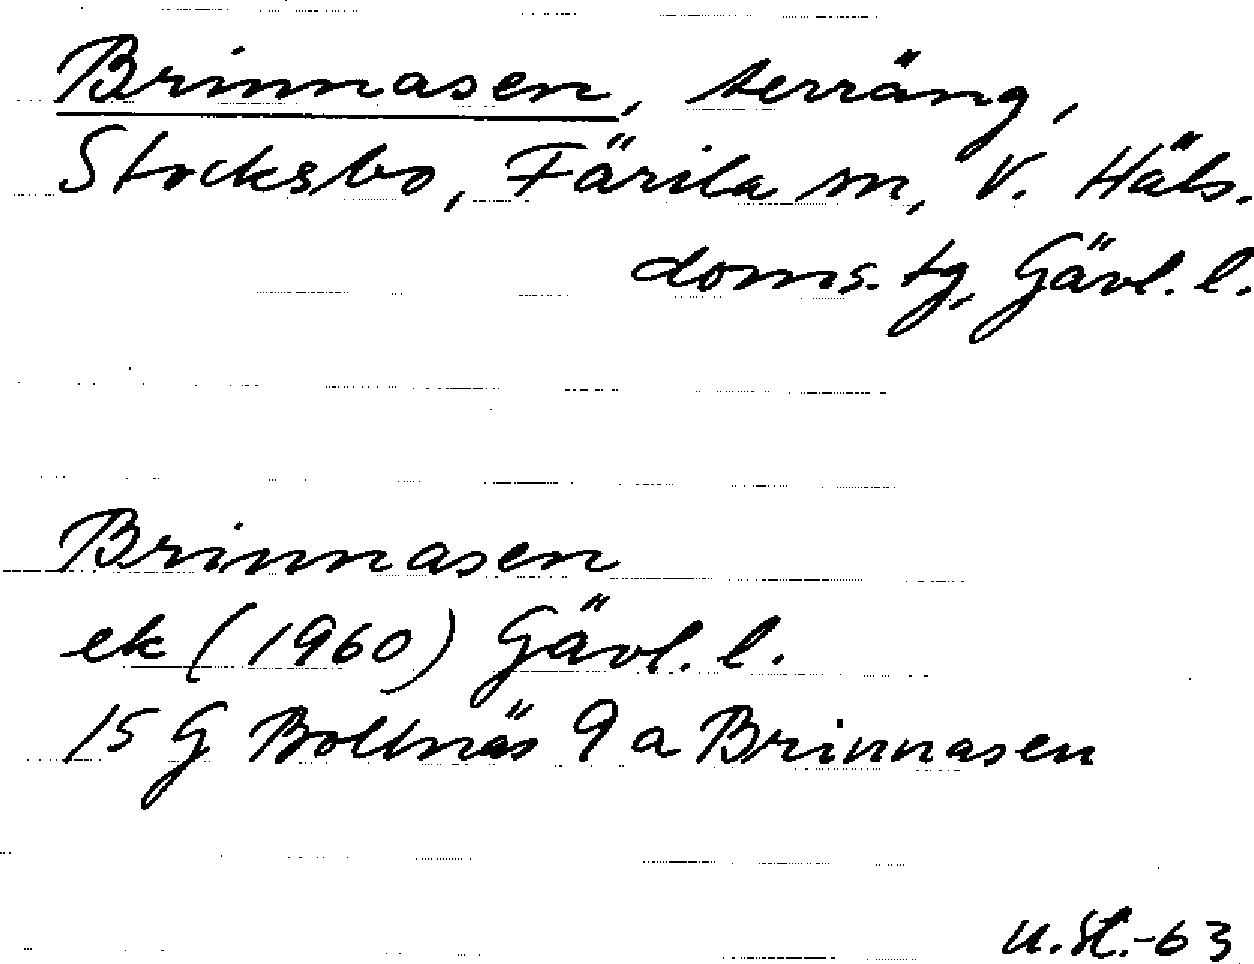 Brinnasen, terräng,
Stocksbo, Färila sn, V. Häls.
doms. tg, Gävl. l.
Brinnasen
ek (1960) Gävl. l.
15 G Bollnäs 9 a Brinnasen
u. St.-63